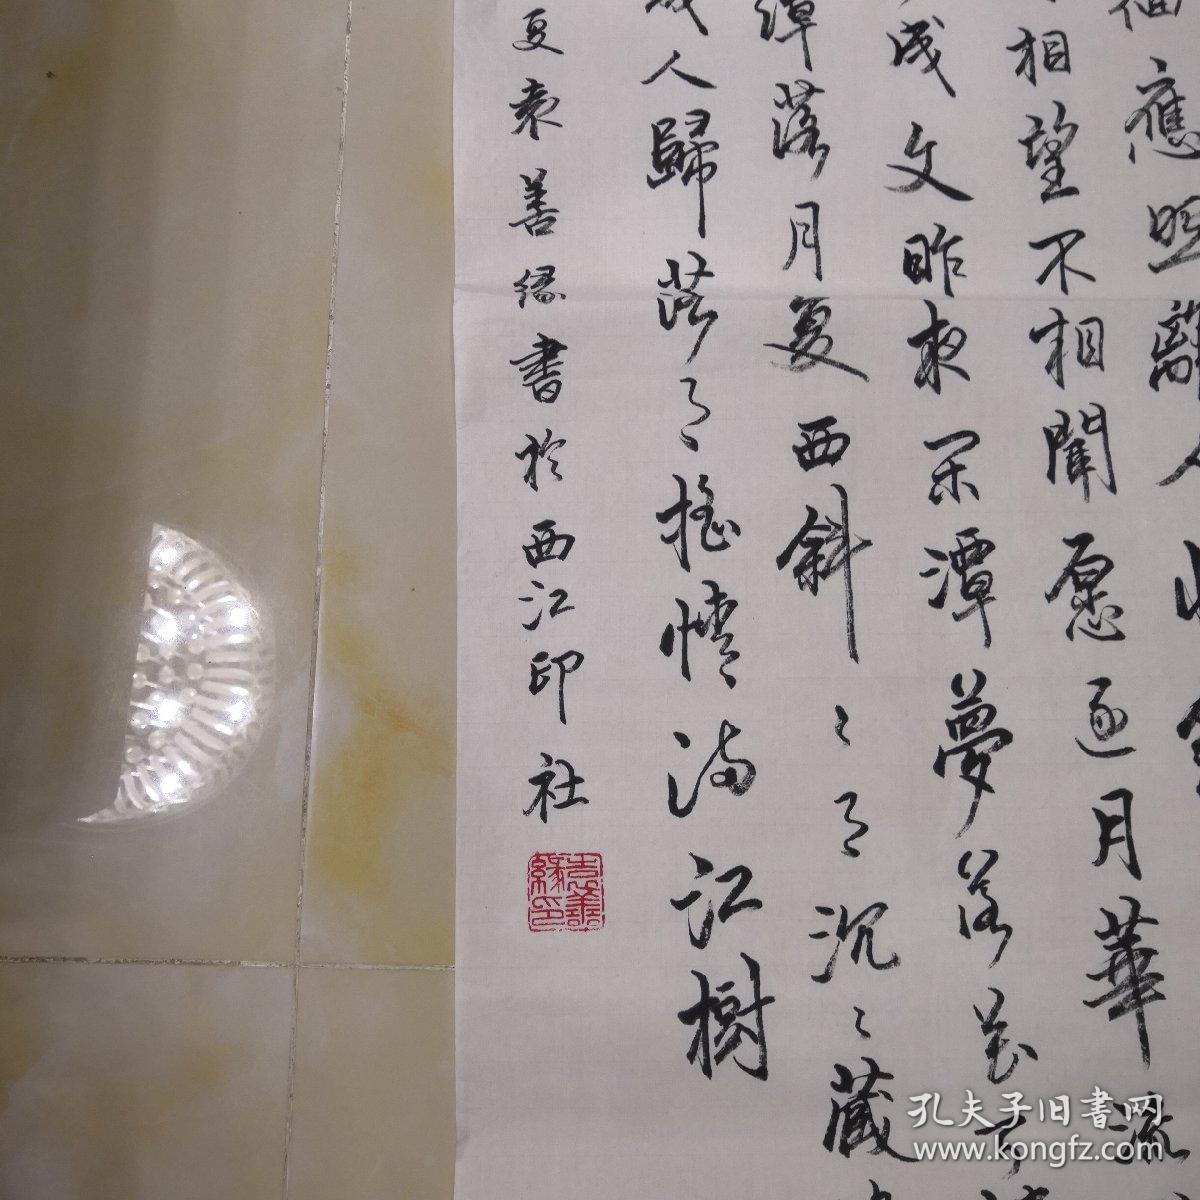 應照離人
相望不相聞愿逐月華流
成文昨夜閑潭夢落花
潭落月复西斜〻月沉〻藏
人歸落月摇情满江樹
夏袁善缘書於西江印社
孔夫子旧书网
www.kongfz.com